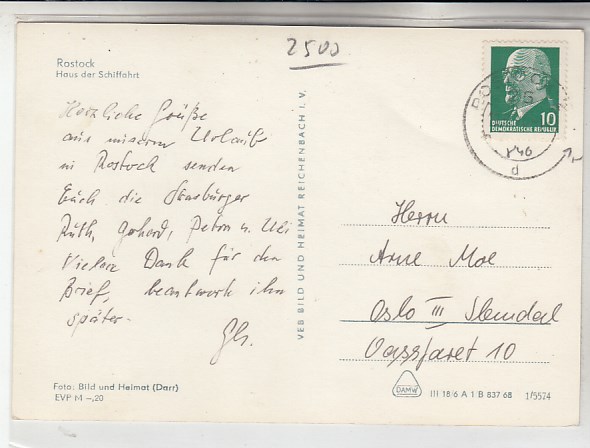 2500
Rostock
Haus der Schiffahrt
Herzliche Grüße
aus unserem Urlaub
in Rostock senden
Euch die Strasburger
Ruth, Gerhard, Petra u. Uli
Vielen Dank für den
Brief, beantwork ihn
später.
Gh.
Foto: Bild und Heimat (Darr)
EVP M -,20
VEB BILD UND HEIMAT REICHENBACH I. V.
10
DEUTSCHE
DEMOKRATISCHE REPUBLIK
d
Herrn
Arne Moe
Oslo III Slemdal
10
DAMW
III 18/6 A 1 B 837 68 1/5574